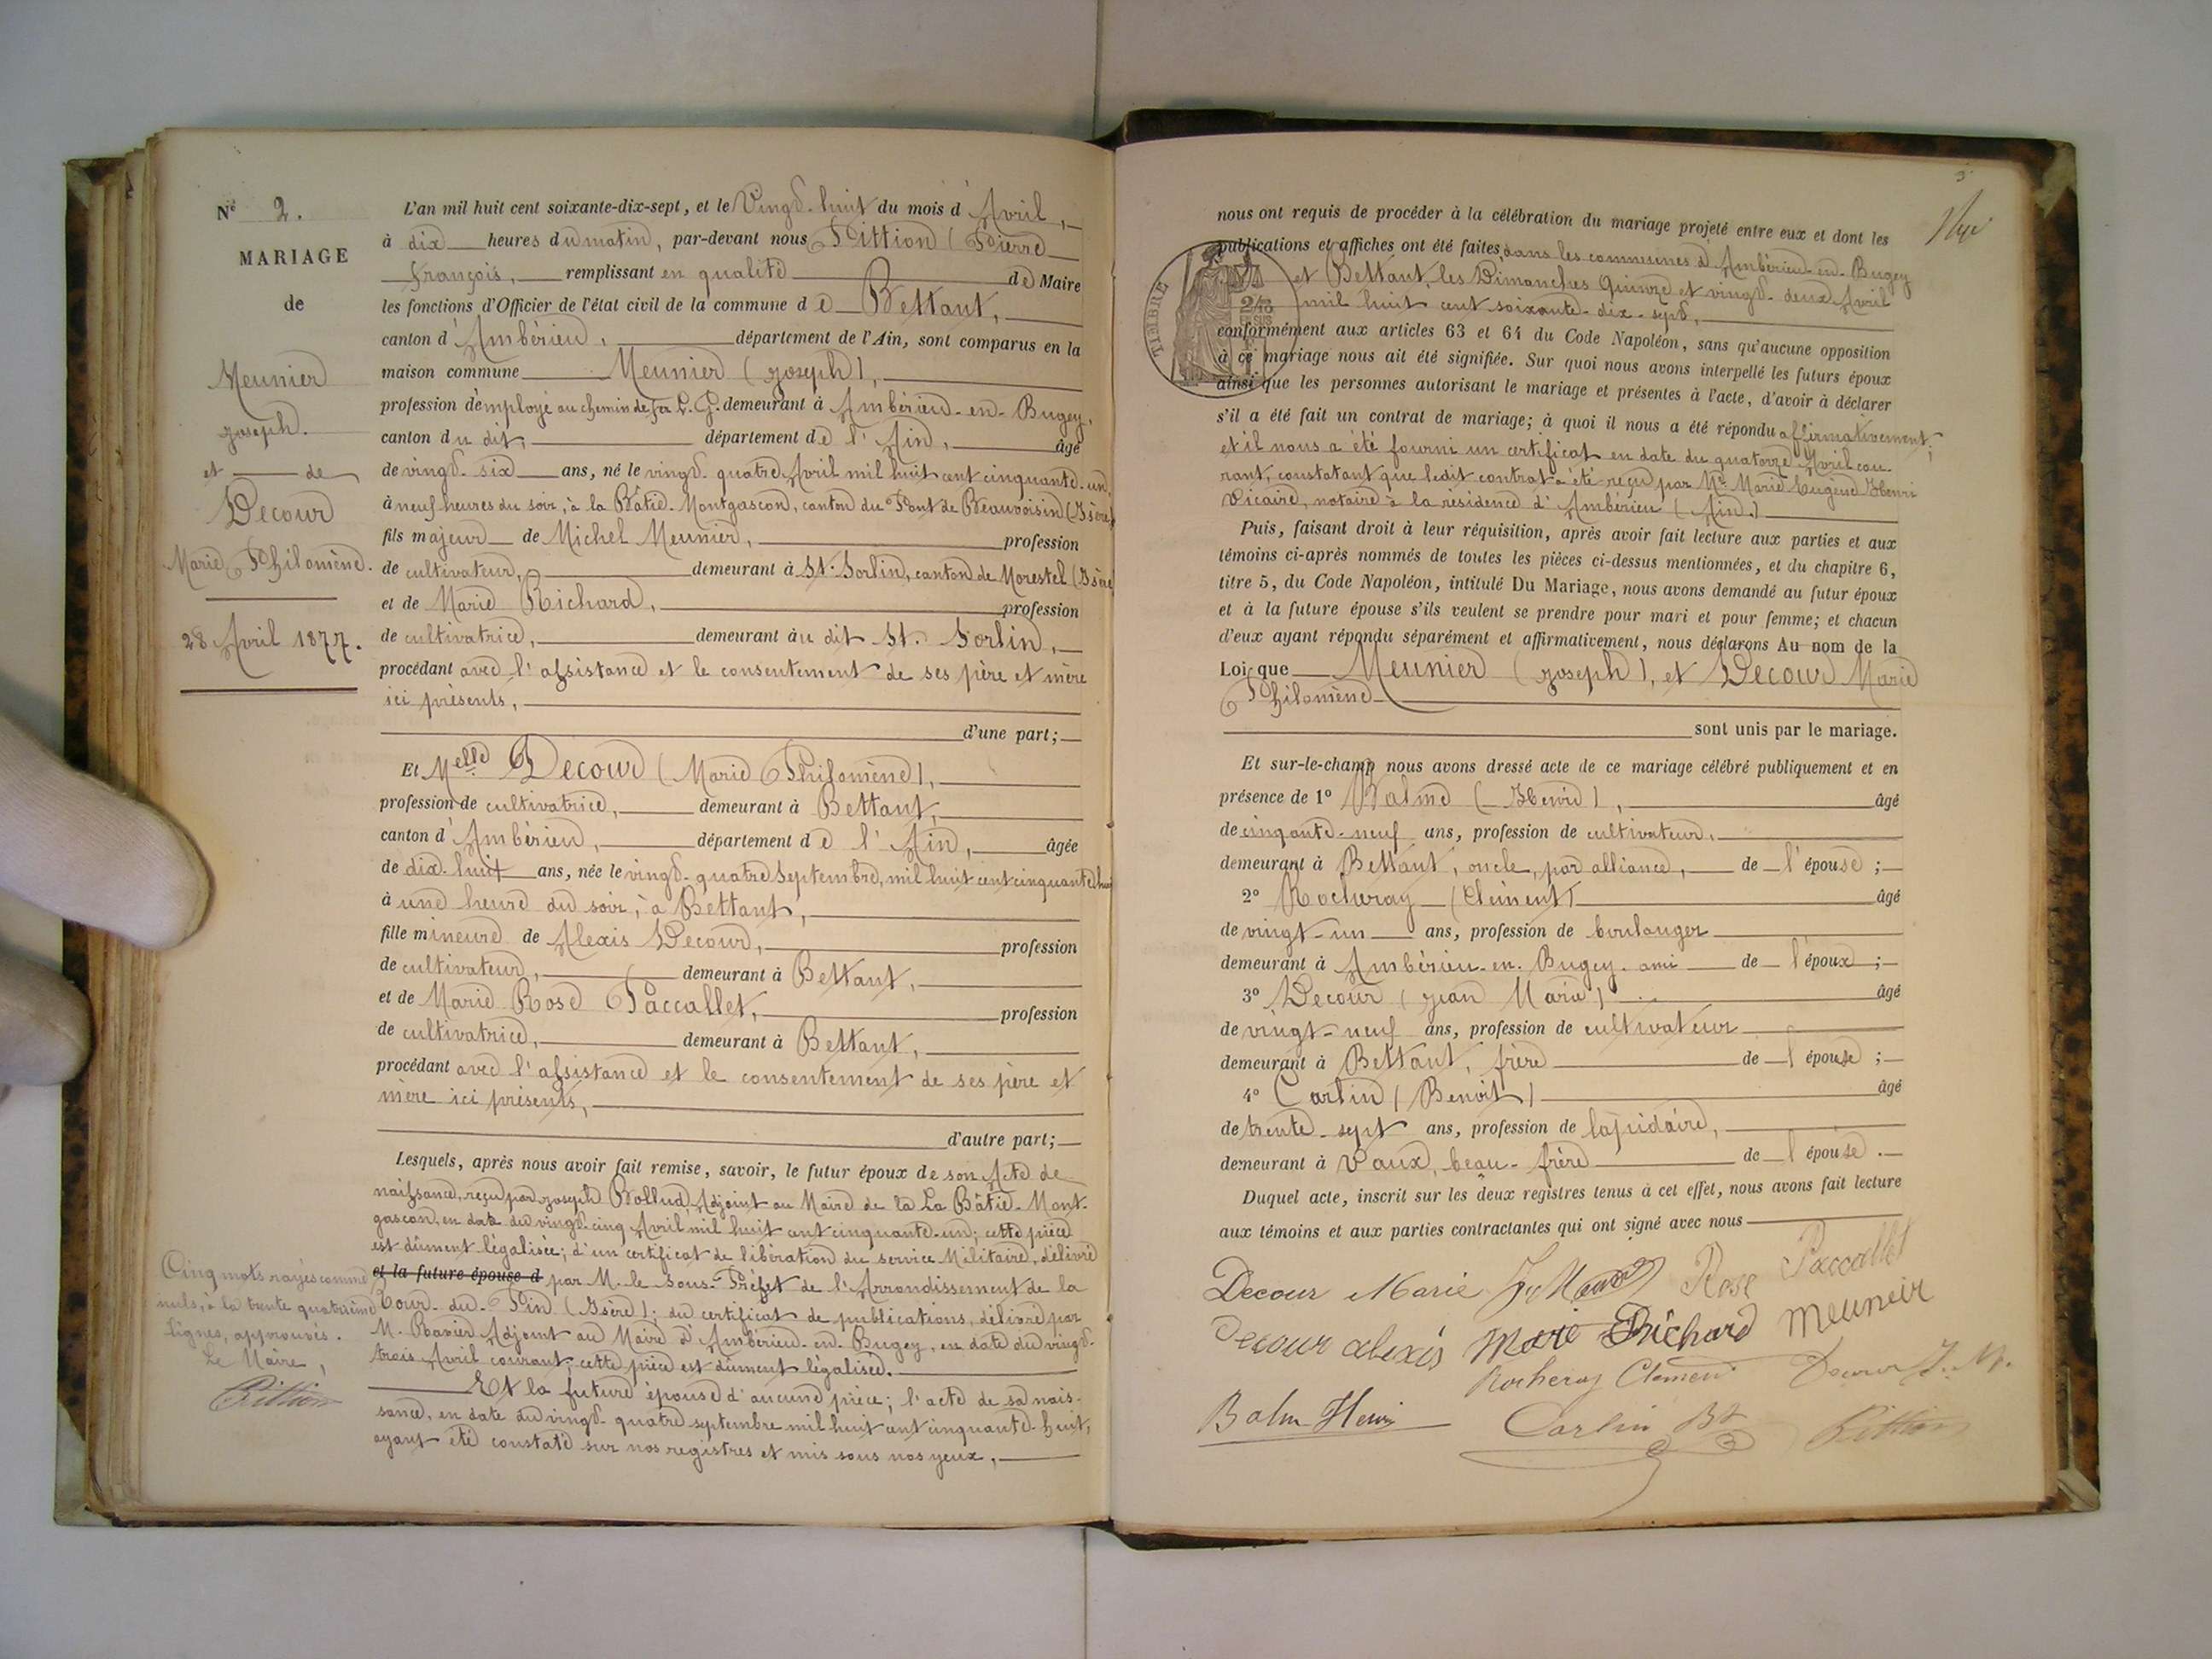 Nº 2.
MARIAGE
de
Meunier
Joseph.
et de
Decour
Marie Philomène.
28 Avril 1877.
Cinq mots rayés comme
nuls, à la trente quatrième
lignes, approuvés.
Le Maire,
Pittion
L'an mil huit cent soixante-dix-sept, et le Vingt-huit du mois d'Avril,
à dix heures du matin, par-devant nous Pittion (Pierre
François, remplissant en qualité de Maire
les fonctions d'Officier de l'état civil de la commune de Bettant,
canton d'Ambérieu, département de l'Ain, sont comparus en la
maison commune Meunier (Joseph),
profession d'employé au chemin de fer L. G. demeurant à Ambérieu-en-Bugey,
canton du dit, département de l'Ain, âgé
de vingt-six ans, né le vingt-quatre Avril mil huit cent cinquante-un,
à neuf heures du soir, à la Bâtie-Montgascon, canton du Pont de Beauvoisin (Isère)
fils majeur de Michel Meunier, profession
de cultivateur, demeurant à St. Sorlin, canton de Morestel (Isère
et de Marie Richard, profession
de cultivatrice, demeurant au dit St. Sorlin,
procédant avec l'assistance et le consentement de ses père et mère
ici présents,
d'une part;
Et Melle Decour (Marie Philomène),
profession de cultivatrice, demeurant à Bettant,
canton d'Ambérieu, département de l'Ain, âgée
de dix-huit ans, née le vingt-quatre Septembre, mil huit cent cinquante huit
à une heure du soir, à Bettant,
fille mineure de Alexis Decour, profession
de cultivateur, demeurant à Bettant,
et de Marie Rose Paccallet, profession
de cultivatrice, demeurant à Bettant,
procédant avec l'assistance et le consentement de ses père et
mère ici présents,
d'autre part;
Lesquels, après nous avoir fait remise, savoir, le futur époux de son Acte de
naissance, reçu par Joseph Bollud Adjoint au Maire de la La Bâtie-Mont-
gascon, en date du vingt-cinq Avril mil huit cent cinquante-un; cette pièce
est dûment légalisée; d'un certificat de libération du service Militaire, délivré
et la future épouse d par M. le Sous-Préfet de l'Arrondissement de la
Tour-du-Pin (Isère); du certificat de publications, délivré par
M. Ravier Adjoint au Maire d'Ambérieu-en-Bugey, en date du vingt-
trois Avril courant; cette pièce est dûment légalisée.
Et la future épouse d'aucune pièce; l'acte de sa nais-
sance, en date du vingt-quatre septembre mil huit cent cinquante-huit,
ayant été constaté sur nos registres et mis sous nos yeux,
3
nous ont requis de procéder à la célébration du mariage projeté entre eux et dont les
publications et affiches ont été faites, dans les communes d'Ambérieu-en-Bugey
et Bettant, les Dimanches Quinze et vingt-deux Avril
mil huit cent soixante-dix-sept,
conformément aux articles 63 et 64 du Code Napoléon, sans qu'aucune opposition
à ce mariage nous ait été signifiée. Sur quoi nous avons interpellé les futurs époux
ainsi que les personnes autorisant le mariage et présentes à l'acte, d'avoir à déclarer
s'il a été fait un contrat de mariage; à quoi il nous a été répondu affirmativement;
et il nous a été fourni un certificat en date du quatorze Avril cou-
rant, constatant que ledit contrat a été reçu par Me Marie Eugène Henri
Vicaire, notaire à la résidence d'Ambérieu (Ain.)
Puis, faisant droit à leur réquisition, après avoir fait lecture aux parties et aux
témoins ci-après nommés de toutes les pièces ci-dessus mentionnées, et du chapitre 6,
titre 5, du Code Napoléon, intitulé Du Mariage, nous avons demandé au futur époux
et à la future épouse s'ils veulent se prendre pour mari et pour femme; et chacun
d'eux ayant répondu séparément et affirmativement, nous déclarons Au nom de la
Loi que Meunier (Joseph), et Decour Marie
Philomène
sont unis par le mariage.
Et sur-le-champ nous avons dressé acte de ce mariage célébré publiquement et en
présence de 1º Balme (Henri), âgé
de cinqante-neuf ans, profession de cultivateur,
demeurant à Bettant, oncle, par alliance, de l'épouse;
2º Rocheray (Clément) âgé
de vingt-un ans, profession de boulanger
demeurant à Ambérieu-en-Bugey ami de l'époux;
3º Decour (Jean Marie) âgé
de vingt-neuf ans, profession de cultivateur
demeurant à Bettant, frère de l'épouse;
4º Carlin (Benoit) âgé
de trente-sept ans, profession de lapidaire,
demeurant à Vaux, beau-frère de l'épouse.
Duquel acte, inscrit sur les deux registres tenus à cet effet, nous avons fait lecture
aux témoins et aux parties contractantes qui ont signé avec nous
Decour Marie Rose Paccallet
Decour alexis Marie Richard Meuneir
Rocheray Clément Decour J. M.
Balm Henri Carlin Bt Pittion
TIMBRE